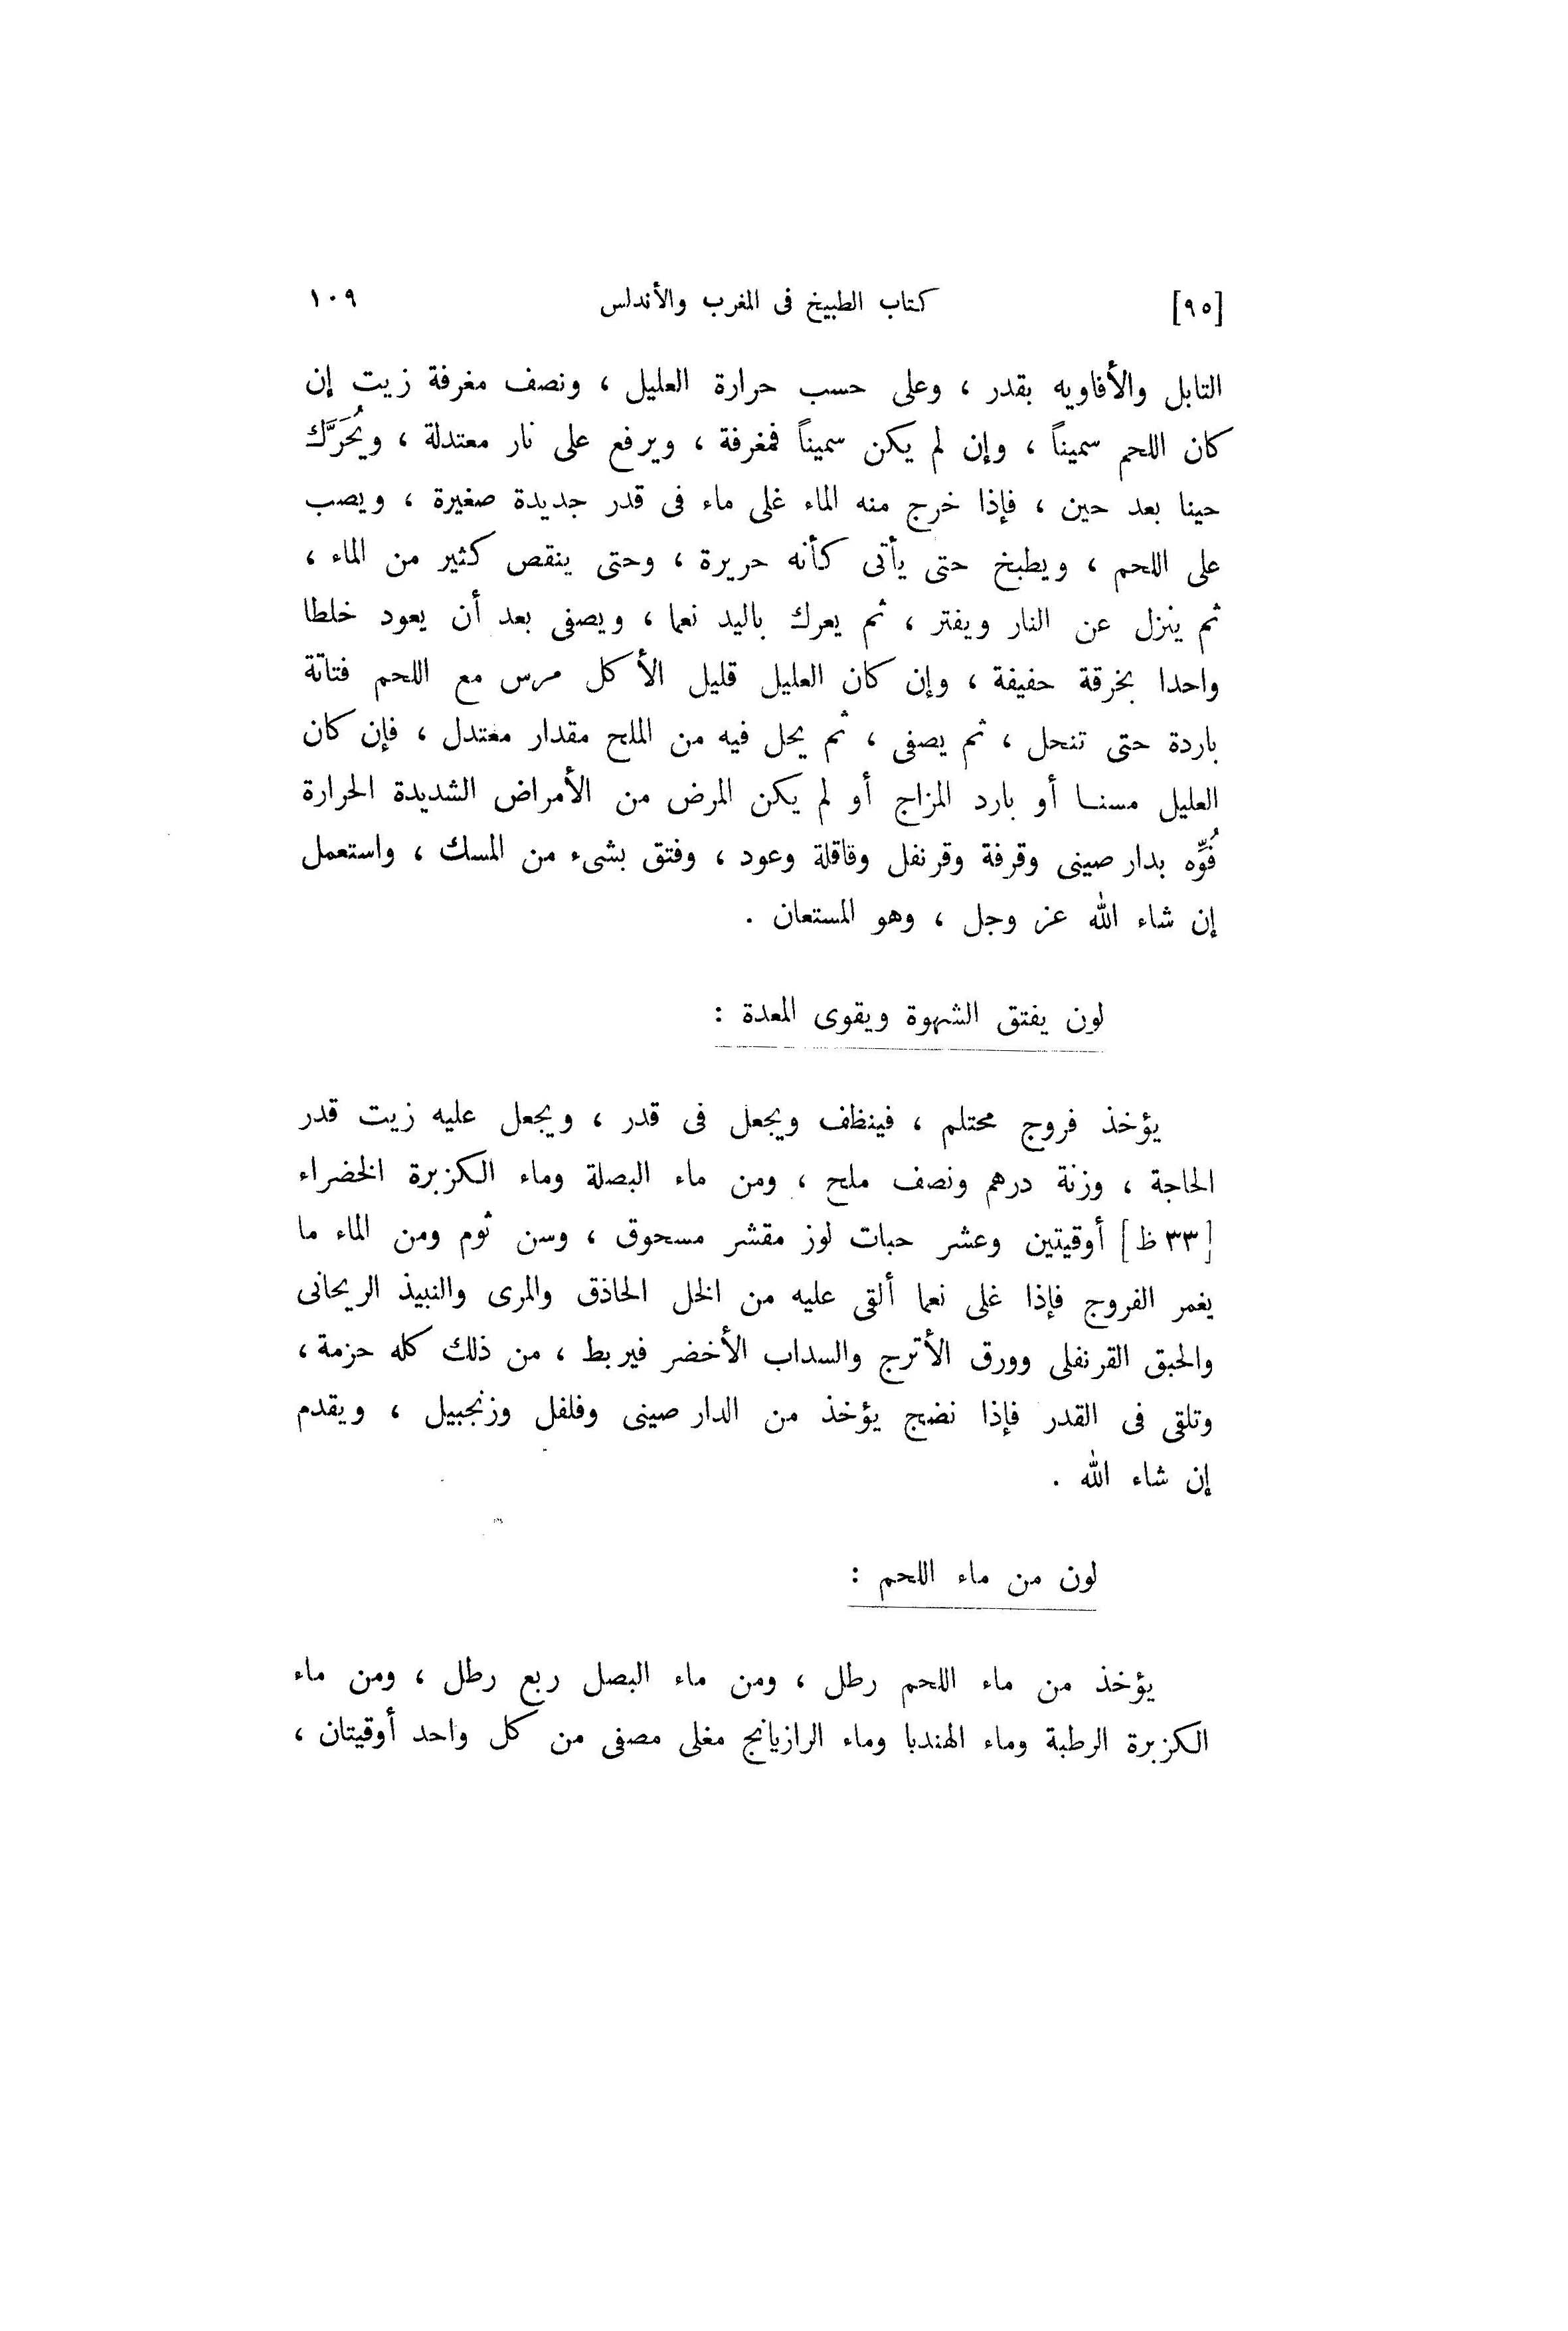 [٩٥] كتاب الطبيخ فى المغرب والأندلس ١٠٩
التابل والأفاويه بقدر ، وعلى حسب حرارة العليل ، ونصف مغرفة زيت إن
كان اللحم سميناً ، وإن لم يكن سميناً فمغرفة ، ويرفع على نار معتدلة ، ويُحَرَّك
حينا بعد حين ، فإذا خرج منه الماء غلى ماء فى قدر جديدة صغيرة ، ويصب
على اللحم ، ويطبخ حتى يأتى كأنه حريرة ، وحتى ينقص كثير من الماء ،
ثم ينزل عن النار ويفتر ، ثم يعرك باليد نعما ، ويصفى بعد أن يعود خلطا
واحدا بخرقة حفيفة ، وإن كان العليل قليل الأكل مرس مع اللحم فتاتة
باردة حتى تنحل ، ثم يصفى ، ثم يحل فيه من الملح مقدار معتدل ، فإن كان
العليل مسنا أو بارد المزاج أو لم يكن المرض من الأمراض الشديدة الحرارة
فُوِّه بدار صينى وقرفة وقرنفل وقاقلة وعود ، وفتق بشىء من المسك ، واستعمل
إن شاء الله عز وجل ، وهو المستعان .
لون يفتق الشهوة ويقوى المعدة :
يؤخذ فروج محتلم ، فينظف ويجعل فى قدر ، ويجعل عليه زيت قدر
الحاجة ، وزنة درهم ونصف ملح ، ومن ماء البصلة وماء الكزبرة الخضراء
[٣٣ ظ] أوقيتين وعشر حبات لوز مقشر مسحوق ، وسن ثوم ومن الماء ما
يغمر الفروج فإذا غلى نعما ألقى عليه من الخل الحاذق والمرى والنبيذ الريحانى
والحبق القرنفلى وورق الأترج والسداب الأخضر فيربط ، من ذلك كله حزمة ،
وتلقى فى القدر فإذا نضج يؤخذ من الدار صينى وفلفل وزنجبيل ، ويقدم
إن شاء الله .
لون من ماء اللحم :
يؤخذ من ماء اللحم رطل ، ومن ماء البصل ربع رطل ، ومن ماء
الكزبرة الرطبة وماء الهندبا وماء الرازيانج مغلى مصفى من كل واحد أوقيتان ،